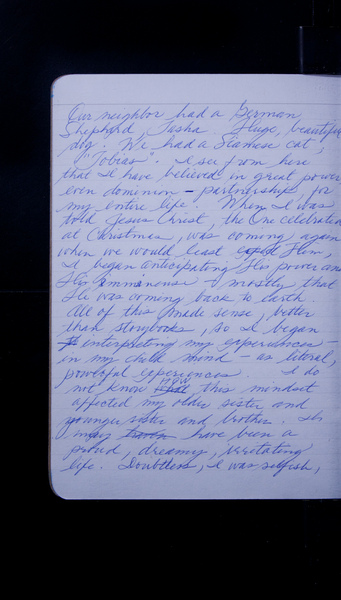 Our neighbor had a German
Shepherd, Tasha. Huge, beautiful
dog. We had a Siamese cat,
"Tobias". I see from here
that I have believed in great power
even dominion – partnership, for
my entire life. When I was
told Jesus Christ, the One celebrated
at Christmas, was coming again
when we would least Him,
I began anticipating His power and
His immanence – mostly that
He was coming back to earth.
All of this made sense, better
than storybooks, so I began
interpreting my experiences –
in my child mind – as literal,
powerful experiences. I do
not know how this mindset
affected my older sister and
younger sister and brother. It
may have been a
proud, dreamy, irritating
life. Doubtless, I was selfish,